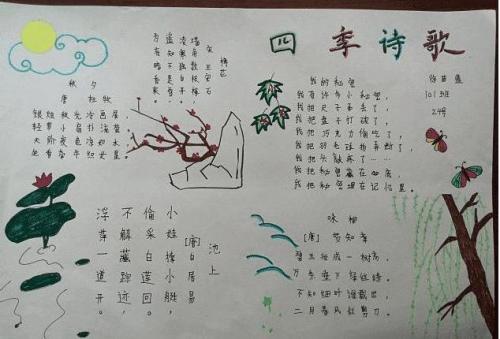 四季诗歌
秋夕
唐 杜牧
银烛秋光冷画屏
轻罗小扇扑流萤
天阶夜色凉如水
坐看牵牛织女星
梅花
宋 王安石
墙角数枝梅，
凌寒独自开。
遥知不是雪，
为有暗香来。
我的秘密
我有许多小秘密，
我把尺子弄丢了，
我把盘子打破了，
我把巧克力偷吃了，
我把羽毛球拍弄断了，
我把头
我把秘密藏在心底，
我把秘密埋在记忆里。
101班
24号
池上
[唐]白居易
小娃撑小艇，
偷采白莲回。
不解藏踪迹，
浮萍一道开。
咏柳
[唐] 贺知章
碧玉妆成一树高，
万条垂下绿丝绦。
不知细叶谁裁出，
二月春风似剪刀。